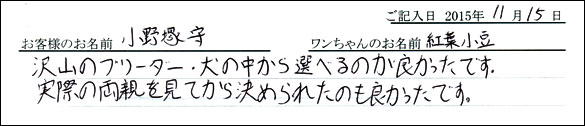 ご記入日 2015年 11月 15日
お客様のお名前 小野塚 守 ワンちゃんのお名前 紅葉小豆
沢山のブリーダー・犬の中から選べるのが良かったです.
実際の両親を見てから決められたのも良かったです。